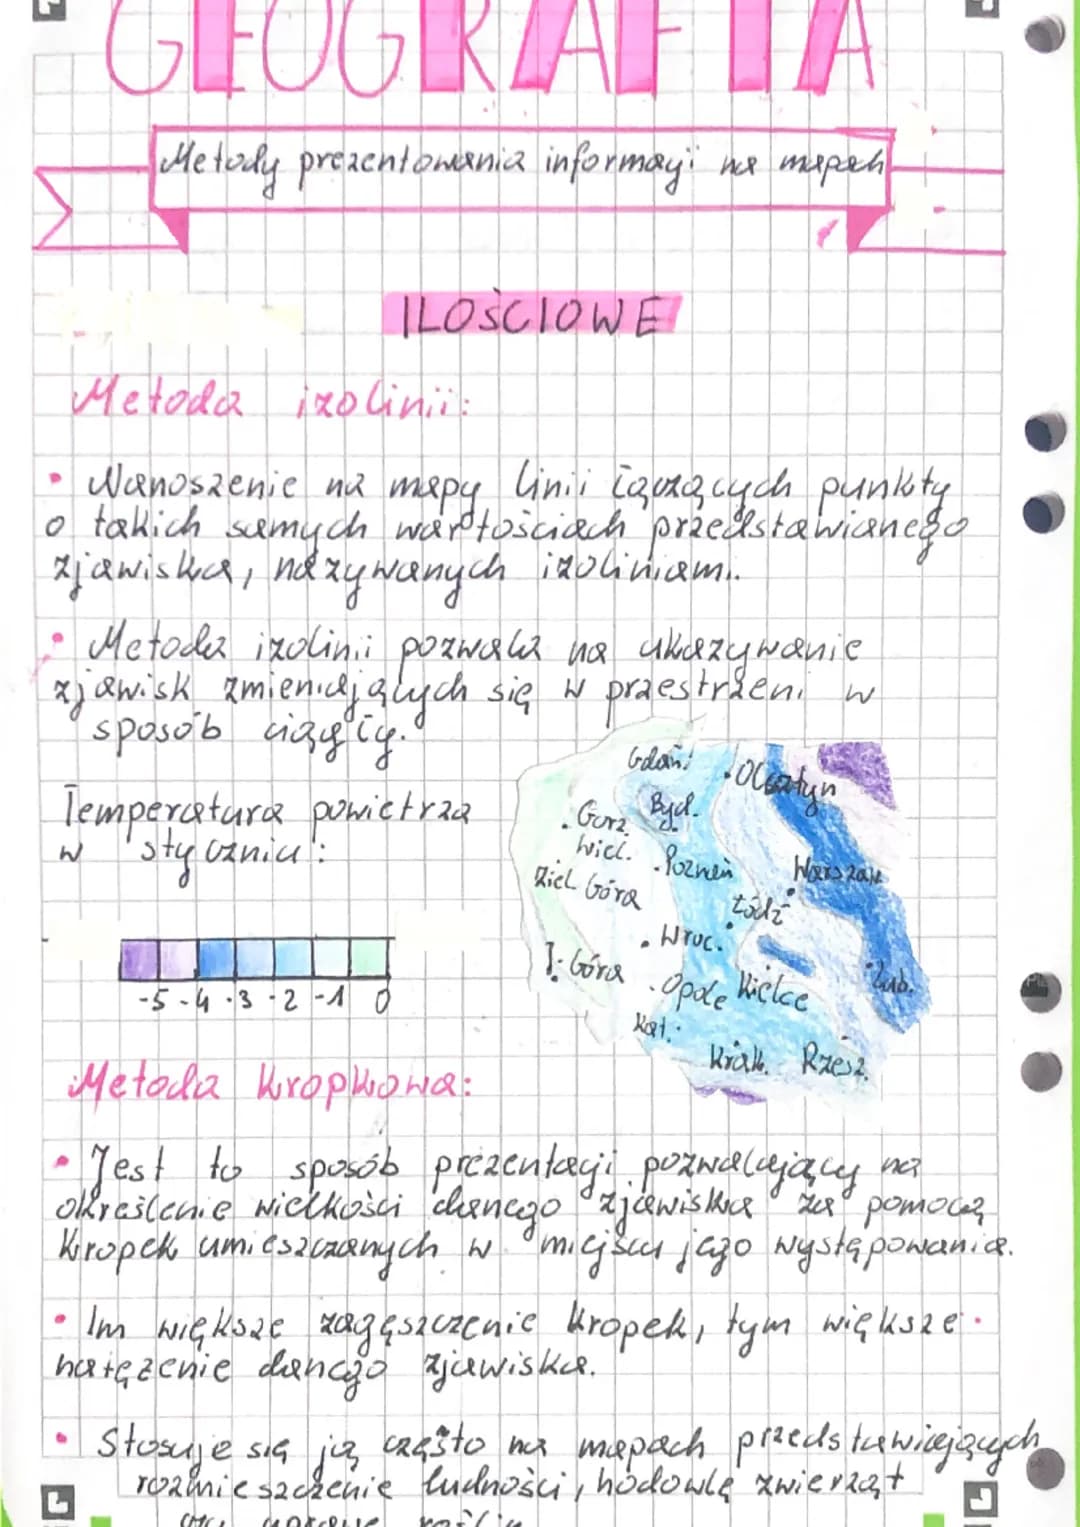 GEOGRAFIA
Metody prezentowania informacji na mapach
ILOŚCIOWE
Metoda izolinii:
• Nanoszenie na mapy linii łączących punkty
o takich samych wartościach przedstawianego
zjawiska, nazywanych izoliniami.
• Metoda izolinii pozwala na ukazywanie
zjawisk zmieniających się w przestrzeni w
sposób ciągły.
Temperatura powietrza
w styczniu:
-5 -4 -3 -2 -1 0
Gdań.
Olsztyn
Byd.
Gorz.
Wiel.
Poznań
Warszawa
Ziel Góra
Łódź
Wroc.
J. Góra
Opole
Kielce
Lub.
Kat.
Krak.
Rzesz.
Metoda kropkowa:
• Jest to sposób prezentacji pozwalający na
określenie wielkości danego zjawiska za pomocą
kropek umieszczanych w miejscu jego występowania.
• Im większe zagęszczenie kropek, tym większe
natężenie danego zjawiska.
• Stosuje się ją często na mapach przedstawiających
rozmieszczenie ludności, hodowlę zwierząt
czy uprawę roślin